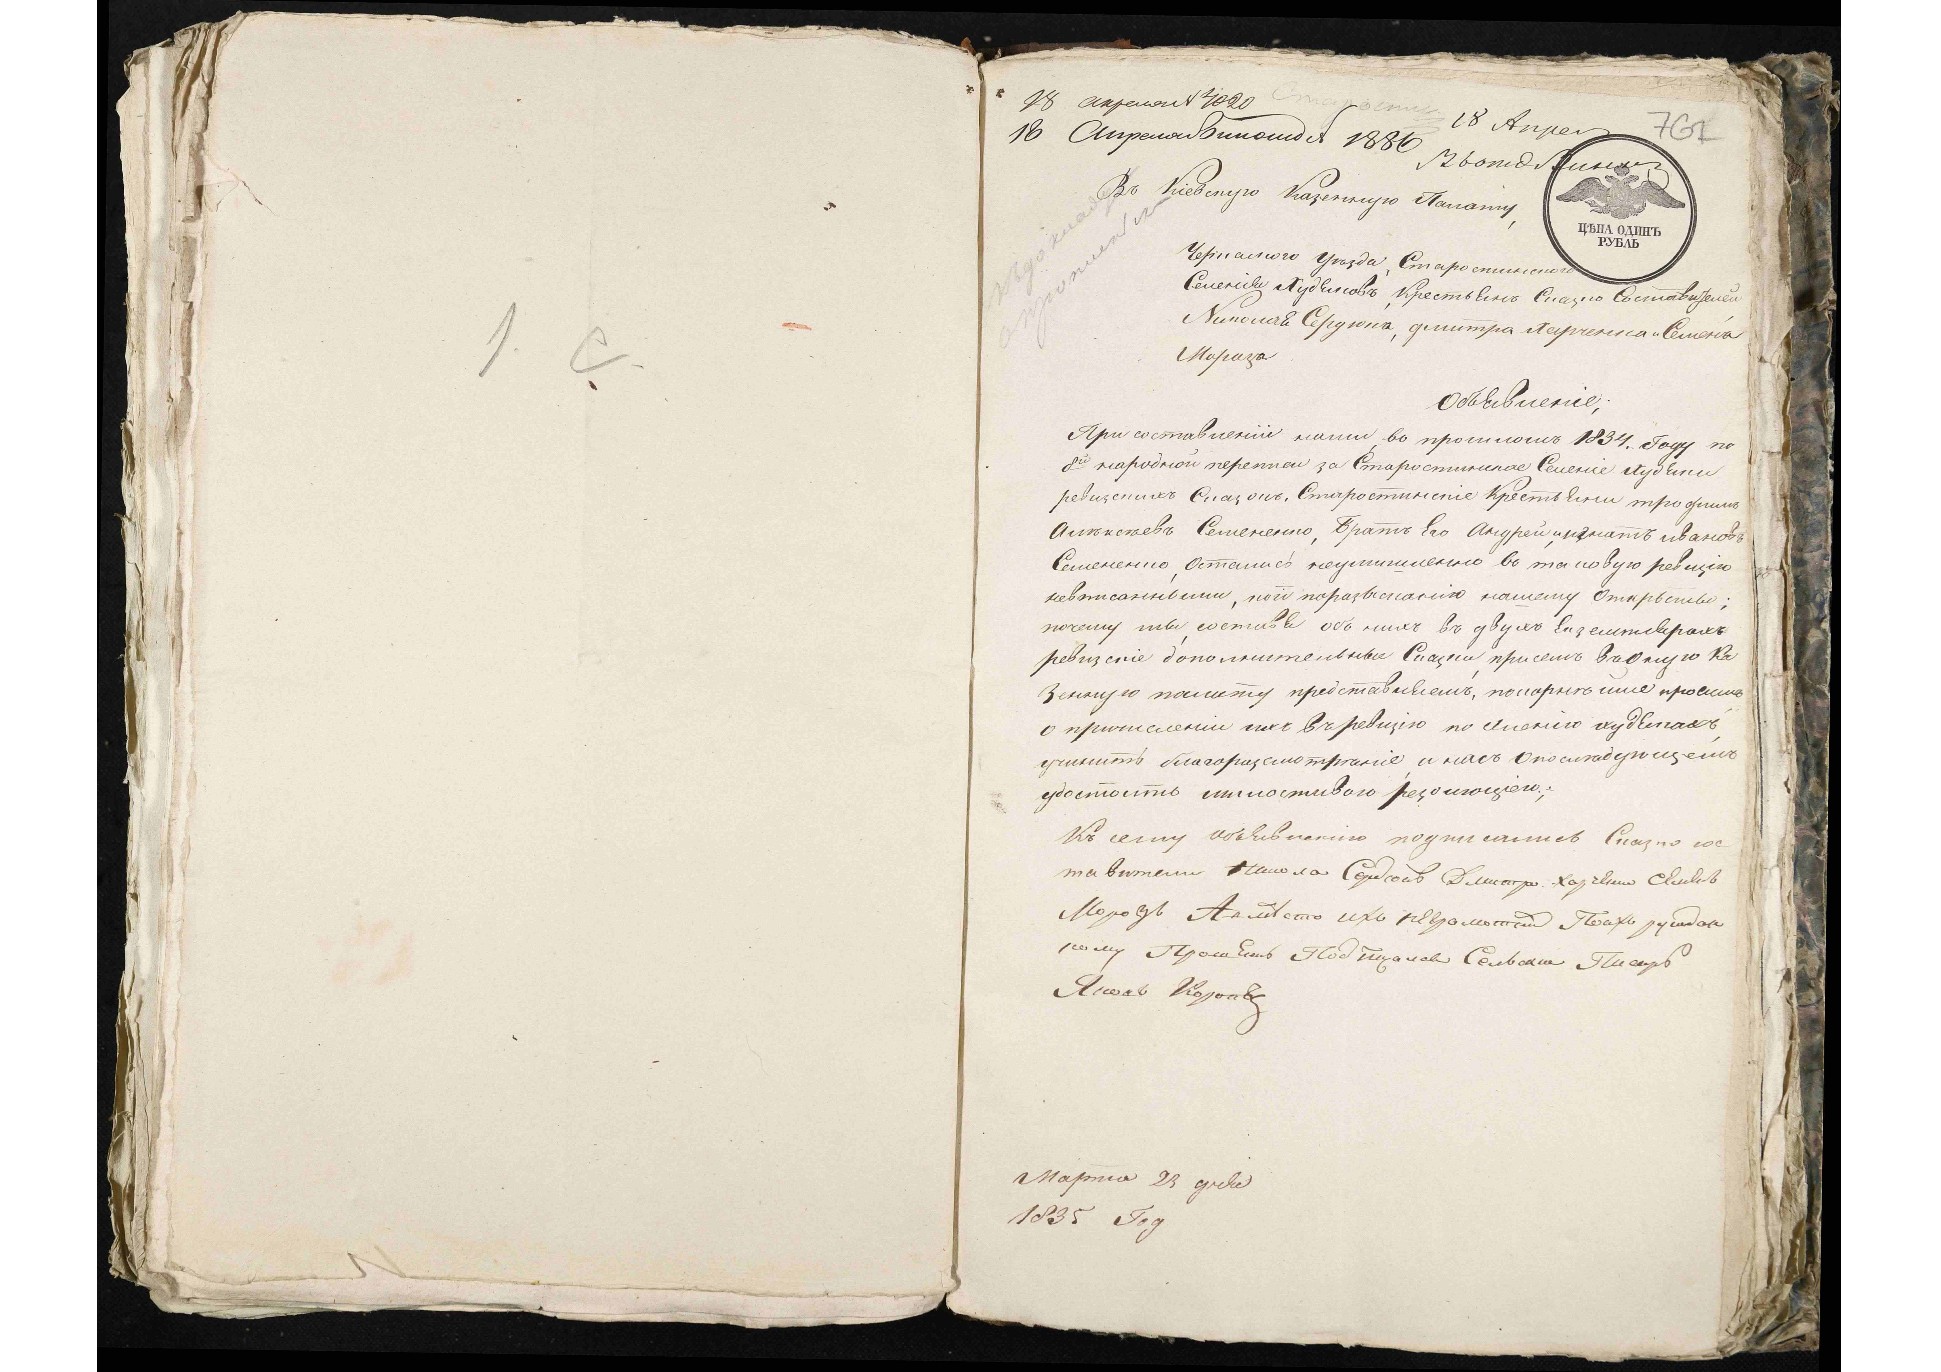 1. С.
18 апреля № 4020
18 Апреля 1886
18 Апрел
761
Въ Кіевскую Казенную Палату,
ЦѢНА ОДИНЪ
РУБЛЬ
Черкаского уѣзда, Старостинского
Селенія Худяковъ, Крестьянъ Сказко Составителей
Николая Сердюка, Дмитра Харченка и Семена
Мороза
Объявленіе;
При составленіи нами во прошломъ 1834. Году по
8й народной переписи за Старостинское Селеніе Худяки
ревизскихъ Сказокъ, Старостинскіе Крестьяни Трофимъ
Алексѣевъ Семененко, Братъ Его Андрей и Игнатъ Ивановъ
Семененко, Остались неумышленно во таковую ревизію
невписанными, кои поразысканію нашему Открыты;
почему мы, составя объ нихъ въ двухъ Екземплярахъ
ревизскіе дополнительные Сказки, присемъ въ Оную Ка
зенную палату представляемъ, покорнѣйше просимъ
о причисленіи ихъ въ ревизію по селенію худякахъ,
учинить благоразсмотрѣніе, и насъ Опослѣдующемъ
удостоить милостивою резолюціею;
Къ сему Объявленію подписались Сказко сос
тавители Никола Сердюкъ Дмитро Харченко Семенъ
Морозъ А вмѣсто ихъ неграмотнихъ Поихъ рукодан
ному Прошенію Подписалъ Сельски Писарь
Яковъ
Марта 23 дня
1835 Год